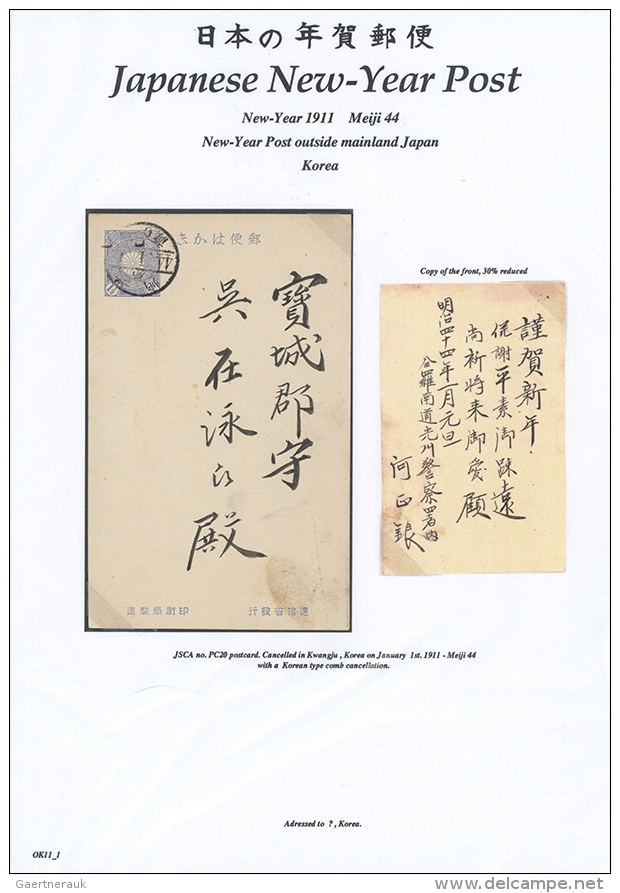 日本の年賀郵便
Japanese New-Year Post
New-Year 1911 Meiji 44
New-Year Post outside mainland Japan
Korea
郵便はかき
寶城郡守
吳在泳氏
殿
遞信省發行
印刷局製造
Copy of the front, 30% reduced
謹賀新年
侭謝平素御疎遠
尚祈将来御愛顧
明治四十四年一月元旦
全羅南道光州警察署内
河正銀
JSCA no. PC20 postcard. Cancelled in Kwangju , Korea on January 1st. 1911 - Meiji 44
with a Korean type comb cancellation.
Adressed to ? , Korea.
OK11_1
Gaertnerauk
www.delcampe.net